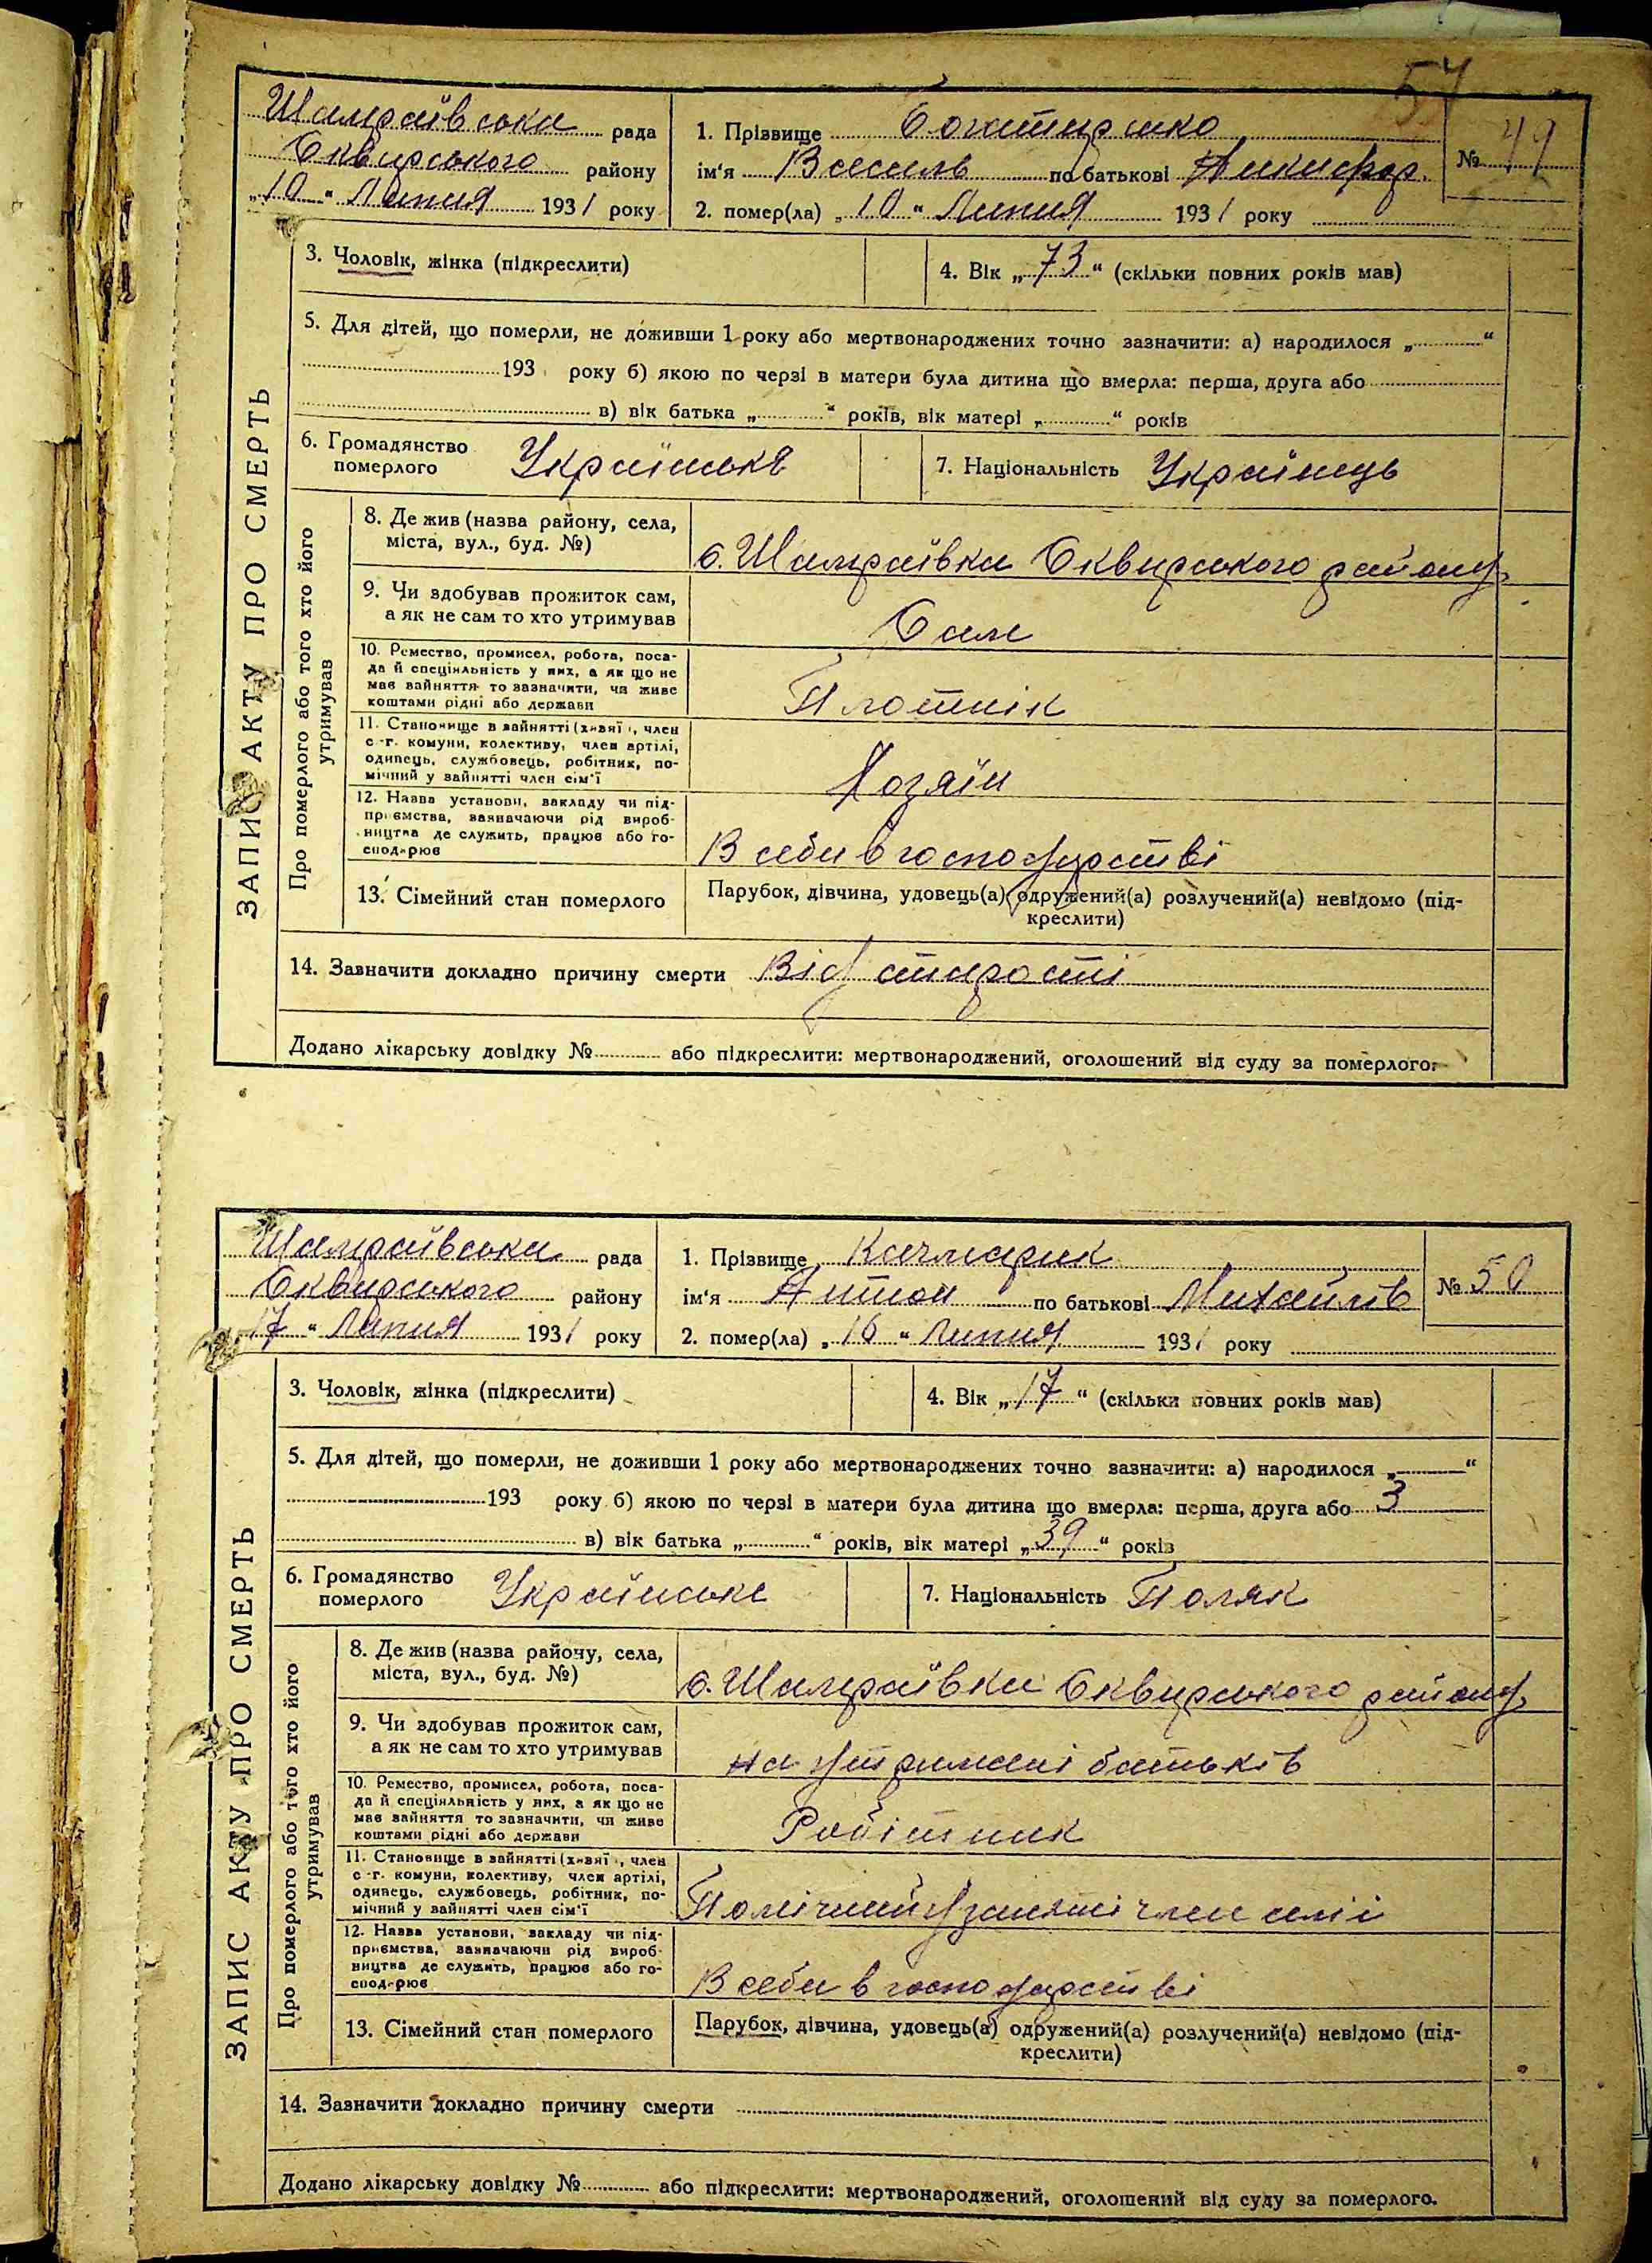 57
Шамраївська рада
Сквирського району
„10“ Липня 1931 року
1. Прізвище Богатиренко
ім'я Василь по батькові Никифор.
2. помер(ла) „10“ Липня 1931 року
№ 49
ЗАПИС АКТУ ПРО СМЕРТЬ
3. Чоловік, жінка (підкреслити)
4. Вік „73“ (скільки повних років мав)
5. Для дітей, що померли, не доживши 1 року або мертвонароджених точно зазначити: а) народилося „ “
193 року б) якою по черзі в матери була дитина що вмерла: перша, друга або
в) вік батька „ “ років, вік матері „ “ років
6. Громадянство
померлого
Українське
7. Національність Українець
Про померлого або того хто його
утримував
8. Де жив (назва району, села,
міста, вул., буд. №)
с. Шамраївка Сквирського району
9. Чи здобував прожиток сам,
а як не сам то хто утримував
Сам
10. Ремество, промисел, робота, поса-
да й спеціяльність у них, а як що не
мав зайняття то зазначити, чи живе
коштами рідні або держави
Плотнік
11. Становище в зайнятті (хазяї, член
с.-г. комуни, колективу, член артілі,
одинець, службовець, робітник, по-
мічний у зайнятті член сім'ї
Хозяїн
12. Назва установи, закладу чи під-
приємства, зазначаючи рід вироб-
ництва де служить, працює або го-
сподарює
В себи в господарстві
13. Сімейний стан померлого
Парубок, дівчина, удовець(а) одружений(а) розлучений(а) невідомо (під-
креслити)
14. Зазначити докладно причину смерти Від старості
Додано лікарську довідку № або підкреслити: мертвонароджений, оголошений від суду за померлого.
Шамраївська рада
Сквирського району
17 “ Липня 1931 року
1. Прізвище Качмарик
ім'я Антон по батькові Михайлів
2. помер(ла) „16“ Липня 1931 року
№ 50
ЗАПИС АКТУ ПРО СМЕРТЬ
3. Чоловік, жінка (підкреслити)
4. Вік „17“ (скільки повних років мав)
5. Для дітей, що померли, не доживши 1 року або мертвонароджених точно зазначити: а) народилося „ “
193 року б) якою по черзі в матери була дитина що вмерла: перша, друга або 3
в) вік батька „ “ років, вік матері „39“ років
6. Громадянство
померлого
Українське
7. Національність Поляк
Про померлого або того хто його
утримував
8. Де жив (назва району, села,
міста, вул., буд. №)
с. Шамраївка Сквирського району
9. Чи здобував прожиток сам,
а як не сам то хто утримував
на утримані батьків
10. Ремество, промисел, робота, поса-
да й спеціяльність у них, а як що не
мав зайняття то зазначити, чи живе
коштами рідні або держави
Робітник
11. Становище в зайнятті (хазяї, член
с.-г. комуни, колективу, член артілі,
одинець, службовець, робітник, по-
мічний у зайнятті член сім'ї
Помічний у заняті член сімї
12. Назва установи, закладу чи під-
приємства, зазначаючи рід вироб-
ництва де служить, працює або го-
сподарює
В себи в господарстві
13. Сімейний стан померлого
Парубок, дівчина, удовець(а) одружений(а) розлучений(а) невідомо (під-
креслити)
14. Зазначити докладно причину смерти
Додано лікарську довідку № або підкреслити: мертвонароджений, оголошений від суду за померлого.